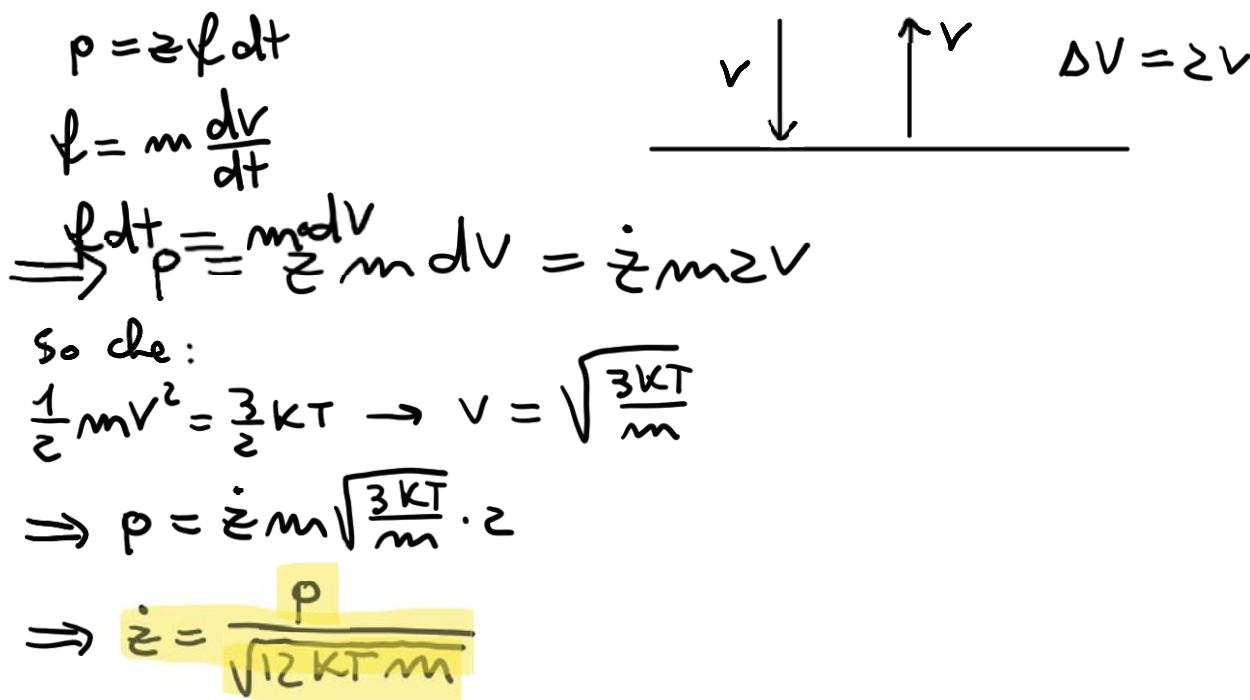 p = z f dt
v v ΔV = 2v
f = m dv/dt
f dt = m dv
⟹ p = ż m dv = ż m 2v
so che:
1/2 mv² = 3/2 KT → v = √(3KT/m)
⟹ p = ż m √(3KT/m) · 2
⟹ ż = p/√(12KTm)